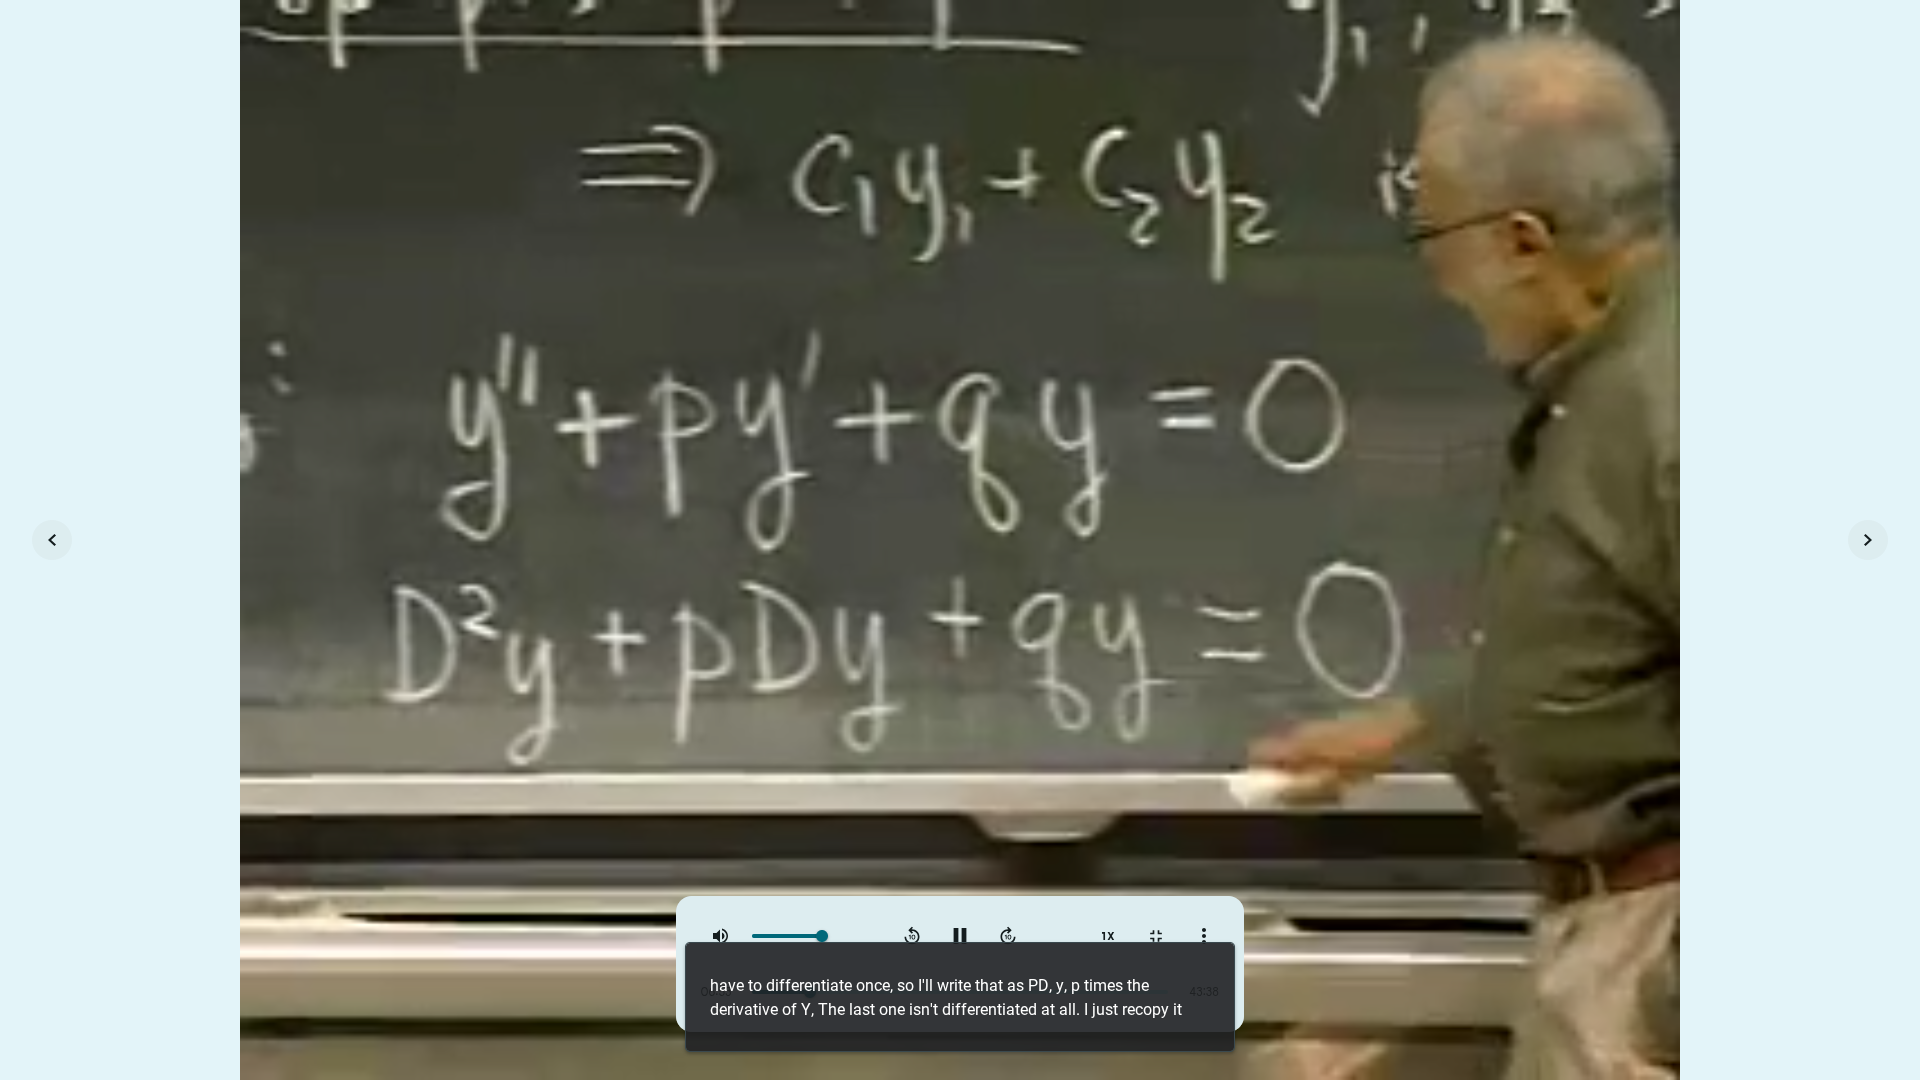 ⇒ c₁y₁ + c₂y₂ is
y'' + py' + qy = 0
D²y + pDy + qy = 0
1X
43:38
have to differentiate once, so I'll write that as PD, y, p times the
derivative of Y, The last one isn't differentiated at all. I just recopy it